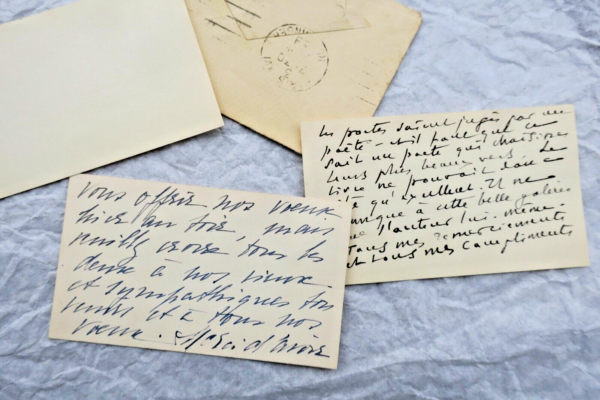 vous offrir nos vœux
hier au soir, mais
veuillez croire tous les
deux à nos vieux
et sympathiques sou
venirs et à tous nos
vœux.
Les poètes soient jugés par un
poète — et il faut que ce
soit un poète qui choisisse
leurs plus beaux vers. Le
livre ne pouvait donc
qui excellent. Il ne
manque à cette belle galerie
que l'auteur lui-même.
Tous mes remerciements
et tous mes compliments